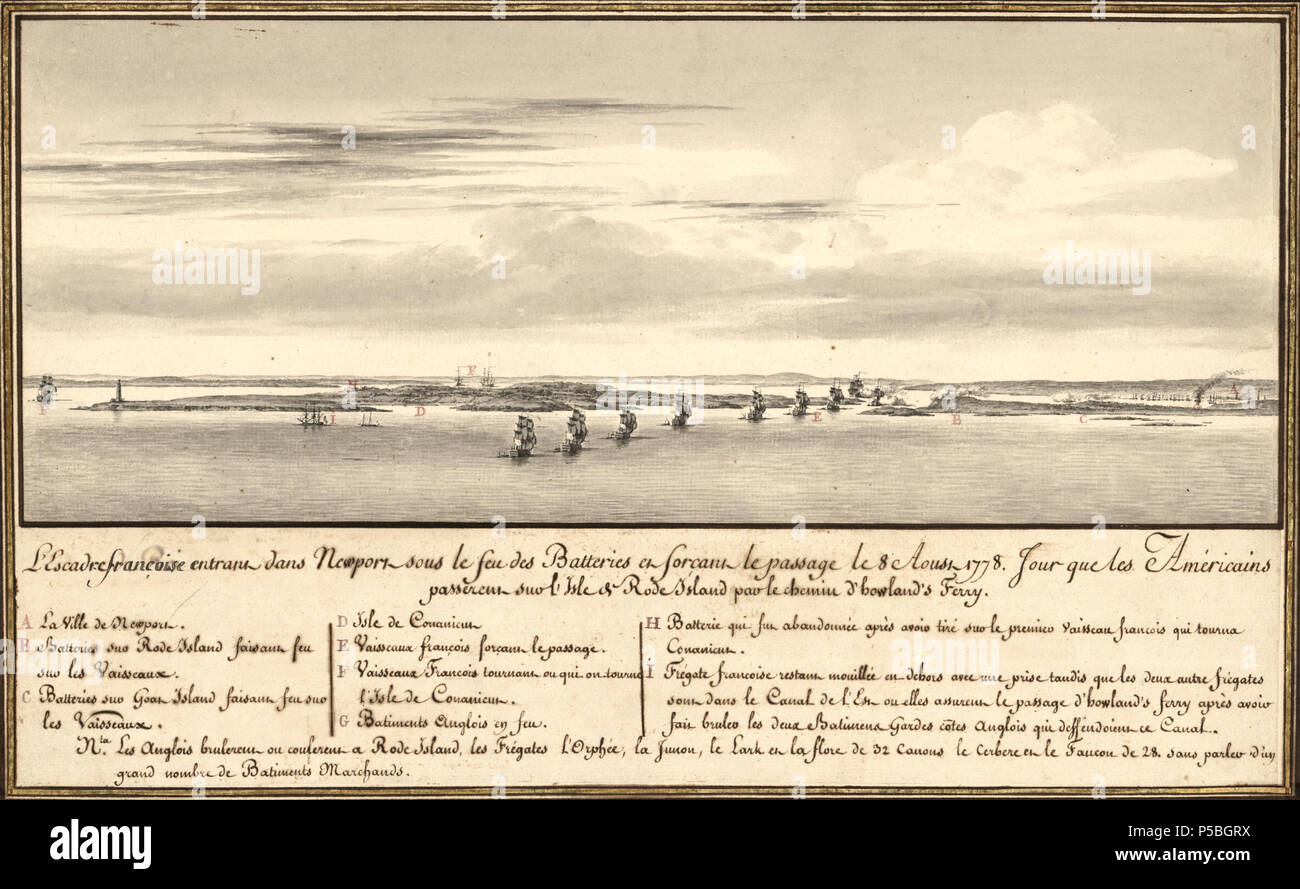 F
H
A
F
I
D
E
B
C
L'Escadre françoise entrant dans Newport sous le feu des Batteries et forçant le passage le 8 Aoust 1778. Jour que les Américains
passerent sur l'Isle de Rode Island par le chemin d'howland's Ferry.
A La Ville de Newport.
B Batteries sur Rode Island faisant feu
sur les Vaisseaux.
C Batteries sur Goat Island faisant feu sur
les Vaisseaux.
D Isle de Conanicut
E Vaisseaux françois forçant le passage.
F Vaisseaux François tournant ou qui on tourné
l'Isle de Conanicut.
G Batiments Anglois en feu.
H Batterie qui fut abandonnée après avoir tiré sur le premier vaisseau francois qui tourna
Conanicut.
I Frégate francoise restant mouillée en dehors avec une prise tandis que les deux autre frégates
sont dans le Canal de l'Est ou elles assurent le passage d'howland's ferry après avoir
fait bruler les deux Batimens Gardes côtes Anglois qui deffendoient ce Canal.
Nta. Les Anglois brulerent ou coulerent a Rode Island, les Frégates l'Orphée, la Junon, le Lark et la flore de 32 Canons le Cerbere et le Faucon de 28. sans parler d'un
grand nombre de Batiments Marchands.
alamy
Image ID: P5BGRX
www.alamy.com